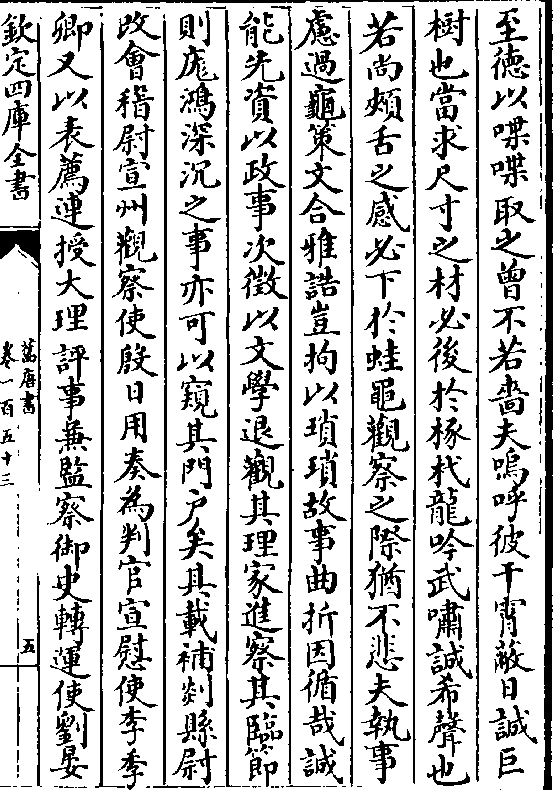 至德以喋喋取之曾不若嗇夫嗚呼彼干霄蔽日誠巨
樹也當求尺寸之材必後於椓杙龍吟武嘯誠希聲也
若尚頰舌之感必下於蛙黽觀察之際猶不悲夫執事
慮過龜策文合雅誥豈拘以瑣瑣故事曲折因循哉誠
能先資以政事次徵以文學退觀其理家進察其臨節
則龎鴻深沉之事亦可以窺其門户矣其載補剡縣尉
改會稽尉宣州觀察使殷日用奏為判官宣慰使李季
卿又以表薦連授大理評事兼監察御史轉運使劉晏
欽定四庫全書
舊唐書
卷一百五十三
五